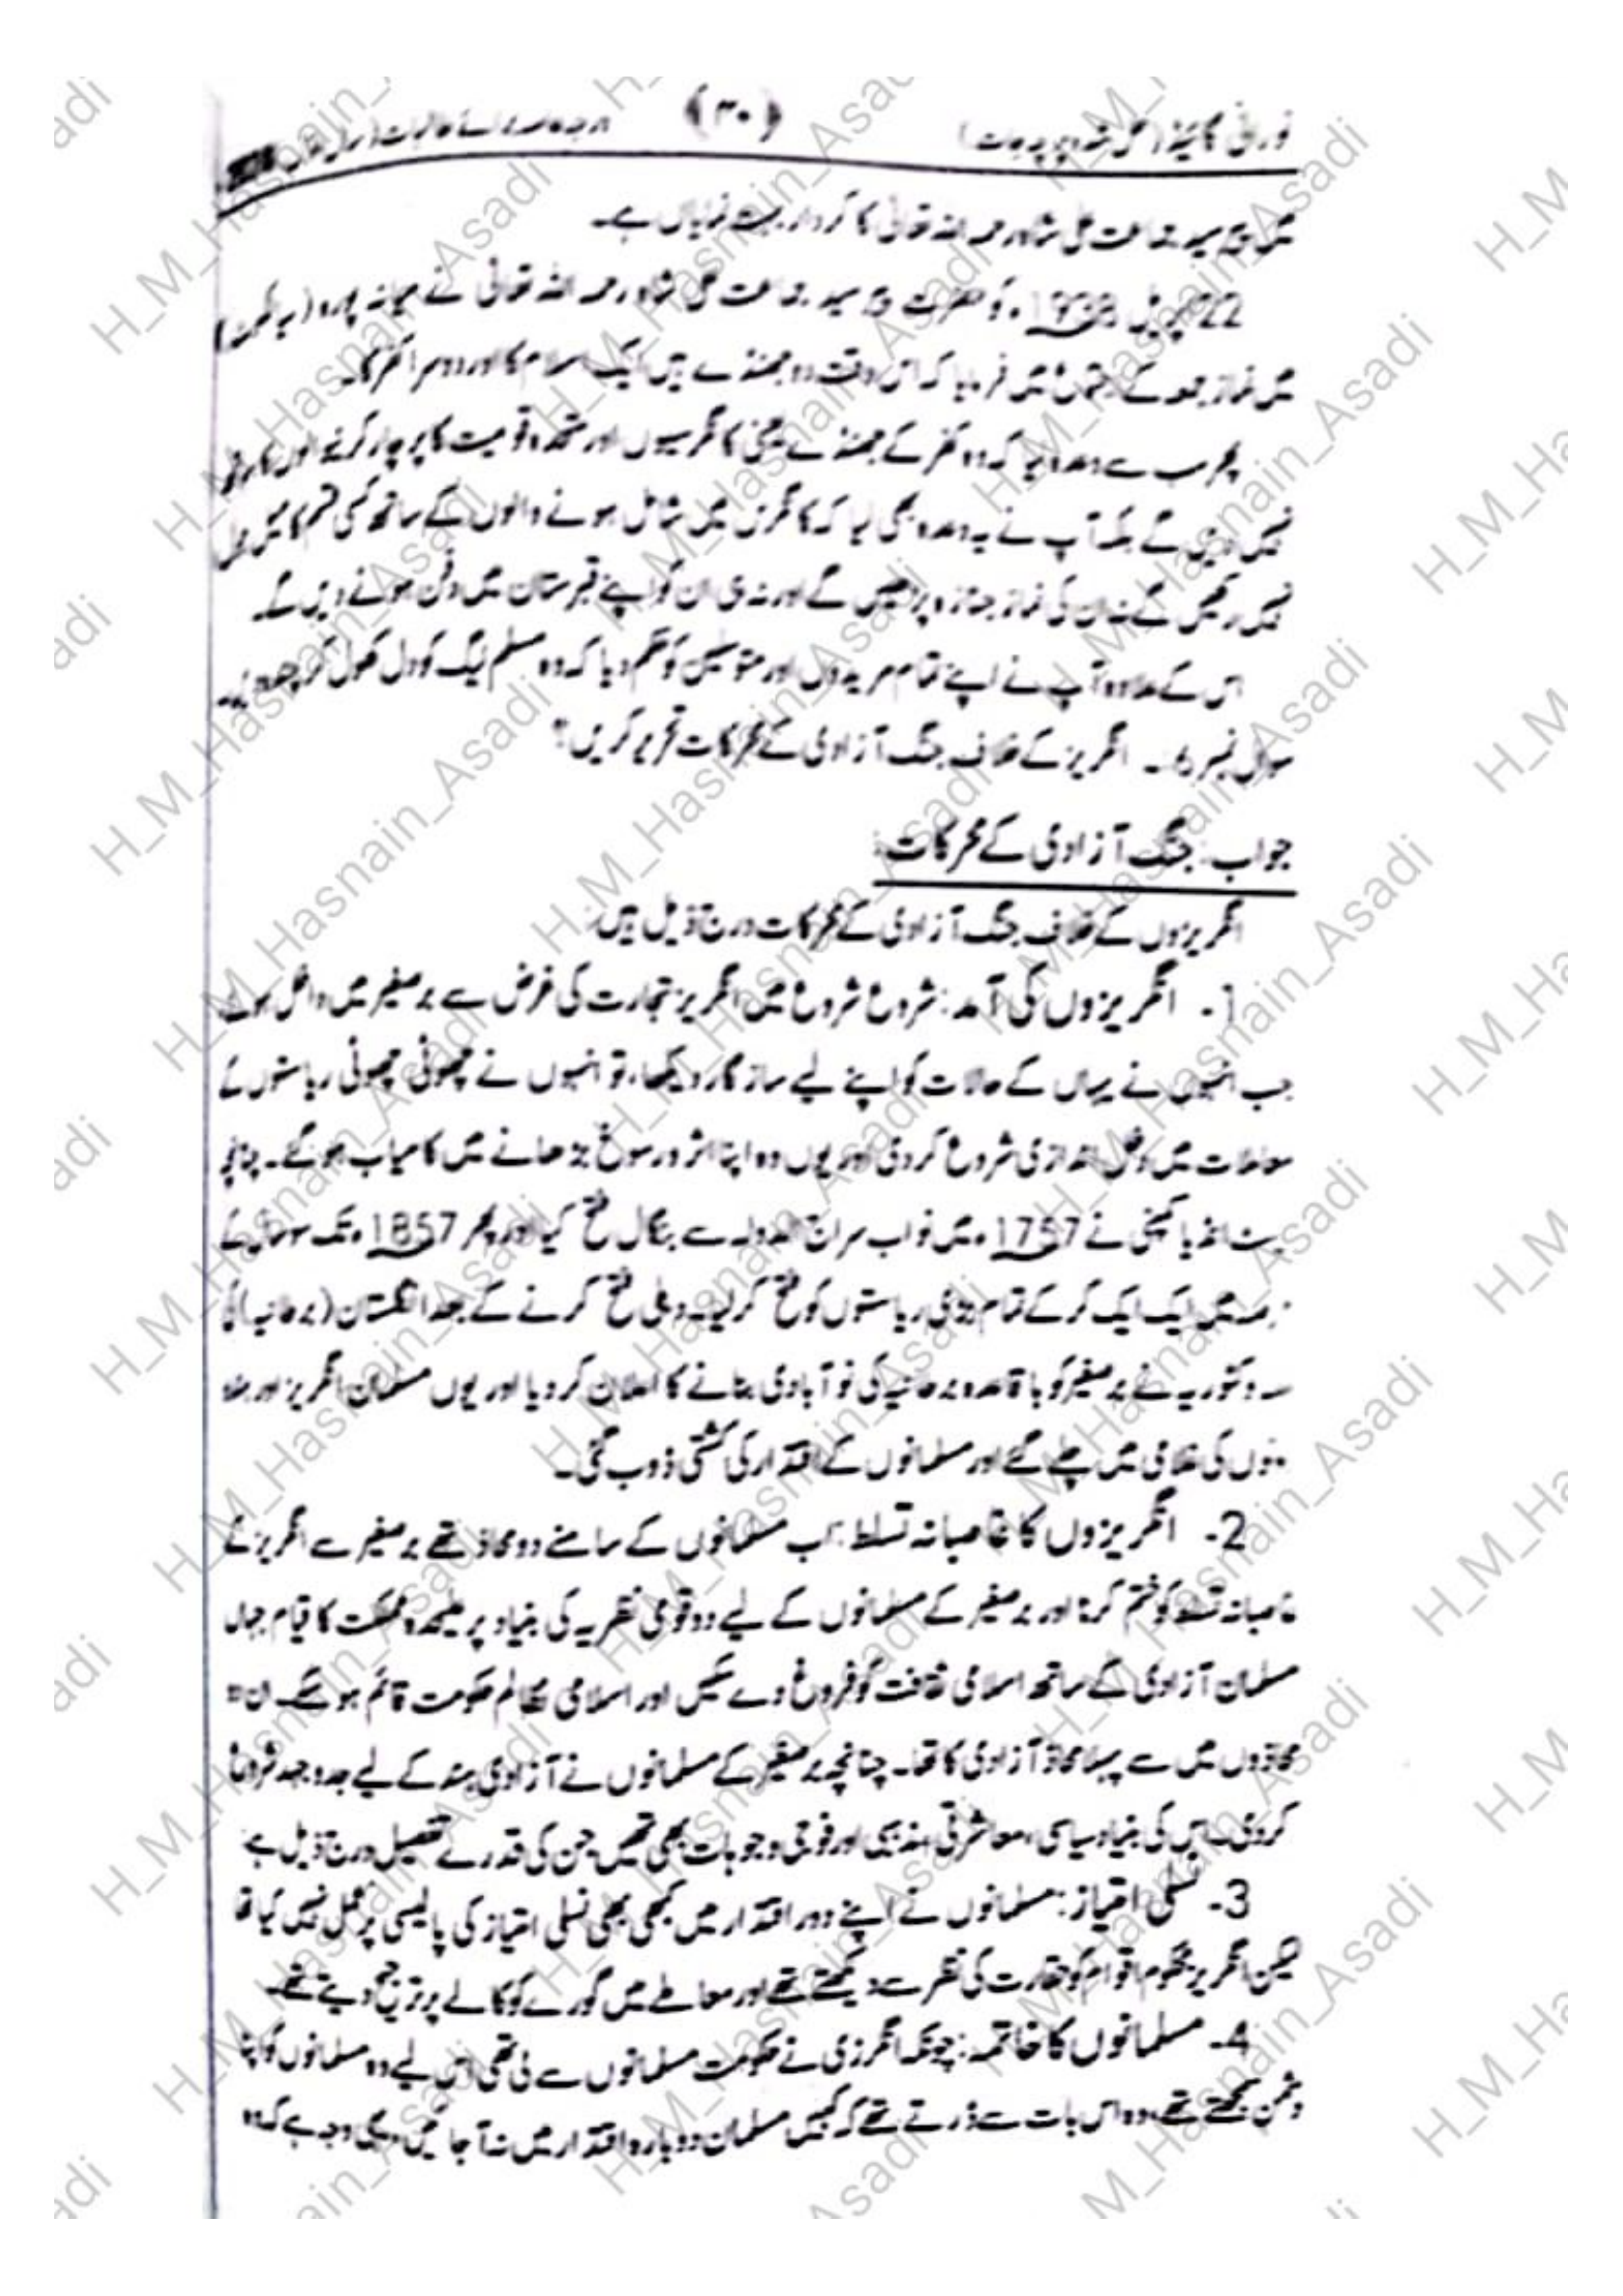 نورانی گائیڈ (حل شدہ پرچہ جات) ﴿۳۰﴾ درجہ خاصہ برائے طالبات (سال اول)
میں پیر سید جماعت علی شاہ رحمہ اللہ تعالیٰ کا کردار بہت نمایاں ہے۔
22 اپریل 1938ء کو حضرت پیر سید جماعت علی شاہ رحمہ اللہ تعالیٰ نے میانہ پورہ (سیالکوٹ)
میں نماز جمعہ کے اجتماع میں فرمایا کہ اس وقت دو جھنڈے ہیں ایک اسلام کا اور دوسرا کفر کا۔
پھر سب سے وعدہ لیا کہ وہ کفر کے جھنڈے یعنی کانگرسیوں اور متحدہ قومیت کا پرچار کرنے والوں کا ووٹ
نہیں دیں گے بلکہ آپ نے یہ وعدہ بھی لیا کہ کانگرس میں شامل ہونے والوں کے ساتھ کسی قسم کا میل
نہیں رکھیں گے نہ ان کی نماز جنازہ پڑھیں گے اور نہ ہی ان کو اپنے قبرستان میں دفن ہونے دیں گے۔
اس کے علاوہ آپ نے اپنے تمام مریدوں اور متوسلین کو حکم دیا کہ وہ مسلم لیگ کو دل کھول کر چندہ دیں۔
سوال نمبر 6۔ انگریز کے خلاف جنگ آزادی کے محرکات تحریر کریں؟
جواب: جنگ آزادی کے محرکات:
انگریزوں کے خلاف جنگ آزادی کے محرکات درج ذیل ہیں:
1- انگریزوں کی آمد: شروع شروع میں انگریز تجارت کی غرض سے برصغیر میں داخل ہوئے
جب انہوں نے یہاں کے حالات کو اپنے لیے سازگار دیکھا، تو انہوں نے چھوٹی چھوٹی ریاستوں کے
معاملات میں دخل اندازی شروع کر دی اور یوں وہ اپنا اثر و رسوخ بڑھانے میں کامیاب ہو گئے۔ چنانچہ
ایسٹ انڈیا کمپنی نے 1757ء میں نواب سراج الدولہ سے بنگال فتح کیا اور پھر 1857ء تک سو سال کے
عرصہ میں ایک ایک کر کے تمام بڑی ریاستوں کو فتح کر لیا۔ دہلی فتح کرنے کے بعد انگلستان (برطانیہ) کی
ملکہ وکٹوریہ نے برصغیر کو باقاعدہ برطانیہ کی نو آبادی بنانے کا اعلان کر دیا اور یوں مسلمان انگریز اور ہندو
دونوں کی غلامی میں چلے گئے اور مسلمانوں کے اقتدار کی کشتی ڈوب گئی۔
2- انگریزوں کا غاصبانہ تسلط: اب مسلمانوں کے سامنے دو محاذ تھے برصغیر سے انگریز کے
غاصبانہ تسلط کو ختم کرنا اور برصغیر کے مسلمانوں کے لیے دو قومی نظریہ کی بنیاد پر علیحدہ مملکت کا قیام جہاں
مسلمان آزادی کے ساتھ اسلامی ثقافت کو فروغ دے سکیں اور اسلامی نظام حکومت قائم ہو سکے۔ ان دو
محاذوں میں سے پہلا محاذ آزادی کا تھا۔ چنانچہ برصغیر کے مسلمانوں نے آزادی ہند کے لیے جدوجہد شروع
کر دی۔ اس کی بنیاد سیاسی، معاشرتی، مذہبی اور فوجی وجوہات بھی تھیں جن کی قدرے تفصیل درج ذیل ہے:
3- نسلی امتیاز: مسلمانوں نے اپنے دور اقتدار میں کبھی بھی نسلی امتیاز کی پالیسی پر عمل نہیں کیا تھا
لیکن انگریز محکوم اقوام کو حقارت کی نظر سے دیکھتے تھے اور معاملے میں گورے کو کالے پر ترجیح دیتے تھے۔
4- مسلمانوں کا خاتمہ: چونکہ انگریزی نے حکومت مسلمانوں سے لی تھی اس لیے وہ مسلمانوں کو اپنا
دشمن سمجھتے تھے، وہ اس بات سے ڈرتے تھے کہ کہیں مسلمان دوبارہ اقتدار میں نہ آ جائیں، یہی وجہ ہے کہ وہ
H_M_Hasnain_Asadi